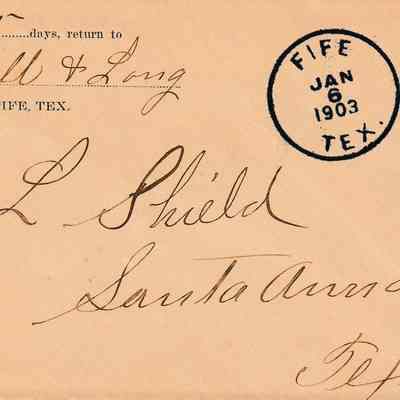 5
........days, return to
ll & Long
FIFE, TEX.
FIFE
JAN
6
1903
TEX.
L Shield
Santa Anna
Tex